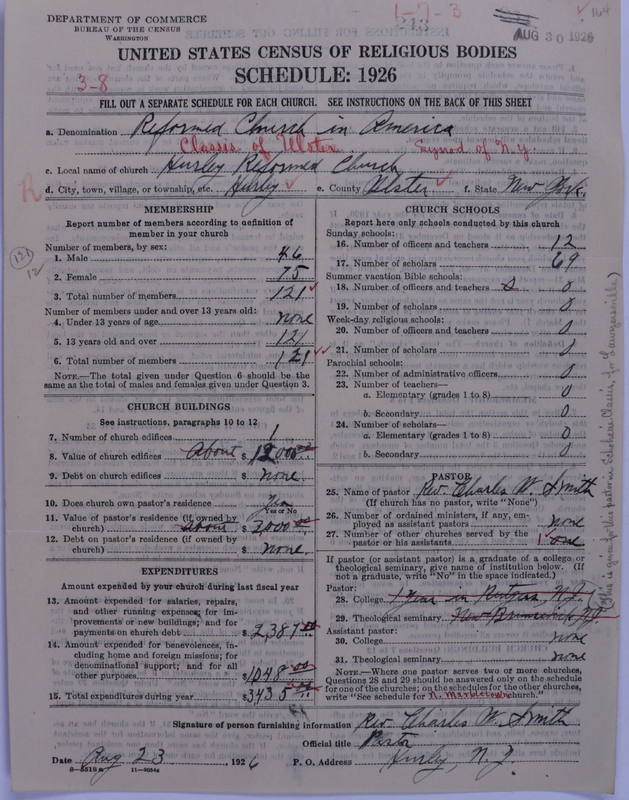 DEPARTMENT OF COMMERCE
BUREAU OF THE CENSUS
WASHINGTON
1-7-3
AUG 30 1926
164
UNITED STATES CENSUS OF RELIGIOUS BODIES
SCHEDULE: 1926
3-8
FILL OUT A SEPARATE SCHEDULE FOR EACH CHURCH. SEE INSTRUCTIONS ON THE BACK OF THIS SHEET
a. Denomination Reformed Church in America
Classis of Ulster Synod of N.Y.
c. Local name of church Hurley Reformed Church
d. City, town, village, or township, etc. Hurley e. County Ulster f. State New York
R
MEMBERSHIP
Report number of members according to definition of
member in your church
Number of members, by sex:
1. Male 46
2. Female 75
3. Total number of members 121
121
12
Number of members under and over 13 years old:
4. Under 13 years of age none
5. 13 years old and over 121
6. Total number of members 121
NOTE.—The total given under Question 6 should be the
same as the total of males and females given under Question 3.
CHURCH BUILDINGS
See instructions, paragraphs 10 to 12
7. Number of church edifices 1
8. Value of church edifices About $ 12000.00
9. Debt on church edifices $ none
10. Does church own pastor's residence Yes
Yes or No
11. Value of pastor's residence (if owned by
church) about $ 3,000.00
12. Debt on pastor's residence (if owned by
church) $ none
EXPENDITURES
Amount expended by your church during last fiscal year
13. Amount expended for salaries, repairs,
and other running expenses; for im-
provements or new buildings; and for
payments on church debt $ 2,387.00
14. Amount expended for benevolences, in-
cluding home and foreign missions; for
denominational support; and for all
other purposes $ 1048.00
15. Total expenditures during year $ 3435.00
CHURCH SCHOOLS
Report here only schools conducted by this church
Sunday schools:
16. Number of officers and teachers 12
17. Number of scholars 69
Summer vacation Bible schools:
18. Number of officers and teachers 0
19. Number of scholars 0
Week-day religious schools:
20. Number of officers and teachers 0
21. Number of scholars 0
Parochial schools:
22. Number of administrative officers 0
23. Number of teachers—
a. Elementary (grades 1 to 8) 0
b. Secondary 0
24. Number of scholars—
a. Elementary (grades 1 to 8) 0
b. Secondary 0
PASTOR
25. Name of pastor Rev. Charles W. Smith
(If church has no pastor, write "None")
26. Number of ordained ministers, if any, em-
ployed as assistant pastors none
27. Number of other churches served by the
pastor or his assistants 1 one
If pastor (or assistant pastor) is a graduate of a college or
theological seminary, give name of institution below. (If
not a graduate, write "No" in the space indicated.)
Pastor:
28. College 1 year in Rutgers N.J.
29. Theological seminary New Brunswick N.J.
Assistant pastor:
30. College none
31. Theological seminary none
NOTE.—Where one pastor serves two or more churches,
Questions 28 and 29 should be answered only on the schedule
for one of the churches; on the schedules for the other churches,
write "See schedule for N. Marbletown church."
Signature of person furnishing information Rev. Charles W. Smith
Official title Pastor
Date Aug 23, 1926 P. O. Address Hurley, N.Y.
8-5518a 11-9064a